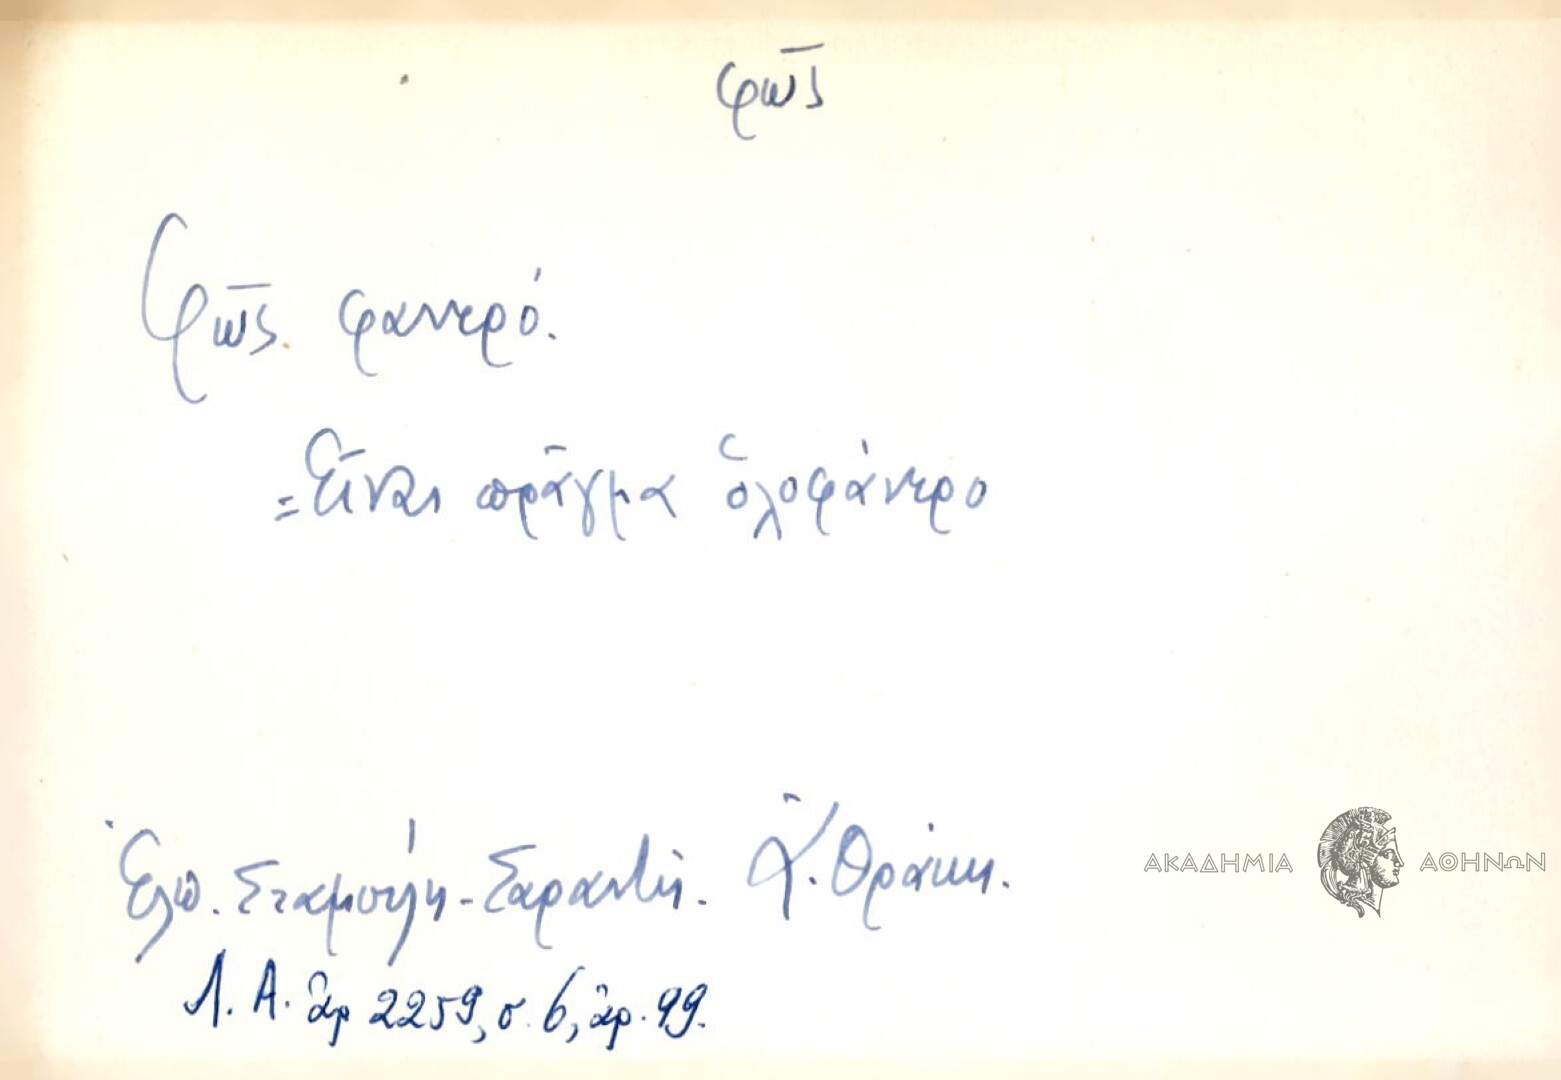 φῶς
Φῶς φανερό.
=Εἶναι πρᾶγμα ὁλοφάνερο
Ἐλπ. Σταμούλη-Σαραντῆ. Ἀ. Θράκη.
Λ. Α. ἀρ 2259, σ. 6, ἀρ. 99.
ΑΚΑΔΗΜΙΑ ΑΘΗΝΩΝ